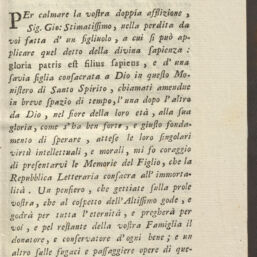 PEr calmare la vostra doppia afflizione,
Sig. Gio: Stimatissimo, nella perdita da
voi fatta d' un figliuolo, a cui si può ap-
plicare quel detto della divina sapienza:
gloria patris est filius sapiens, e d' una
savia figlia consacrata a Dio in questo Mo-
nistero di Santo Spirito, chiamati amendue
in breve spazio di tempo, l'una dopo l'altro
da Dio, nel fiore della loro età, alla sua
gloria, come s'ha ben forte, e giusto fonda-
mento di sperare, attese le loro singolari
virtù intellettuali, e morali, mi fo coraggio
di presentarvi le Memorie del Figlio, che la
Repubblica Letteraria consacra all' immorta-
lità. Un pensiero, che gettiate sulla prole
vostra, che al cospetto dell'Altissimo gode, e
godrà per tutta l'eternità, e pregherà per
voi, e pel restante della vostra Famiglia il
donatore, e conservatore d'ogni bene; e un
altro sulle fugaci e passaggiere opere di que-